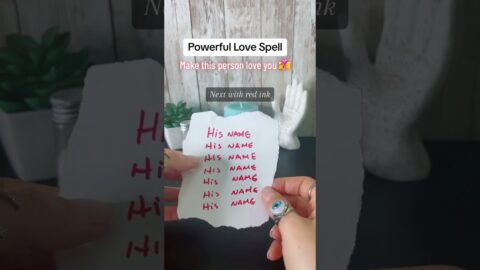 Next with red ink
Powerful Love Spell
Make this person love you 💝
Next with red ink
His NAME
His NAME
His NAME
His NAME
His NAME
His NAME
His NAME